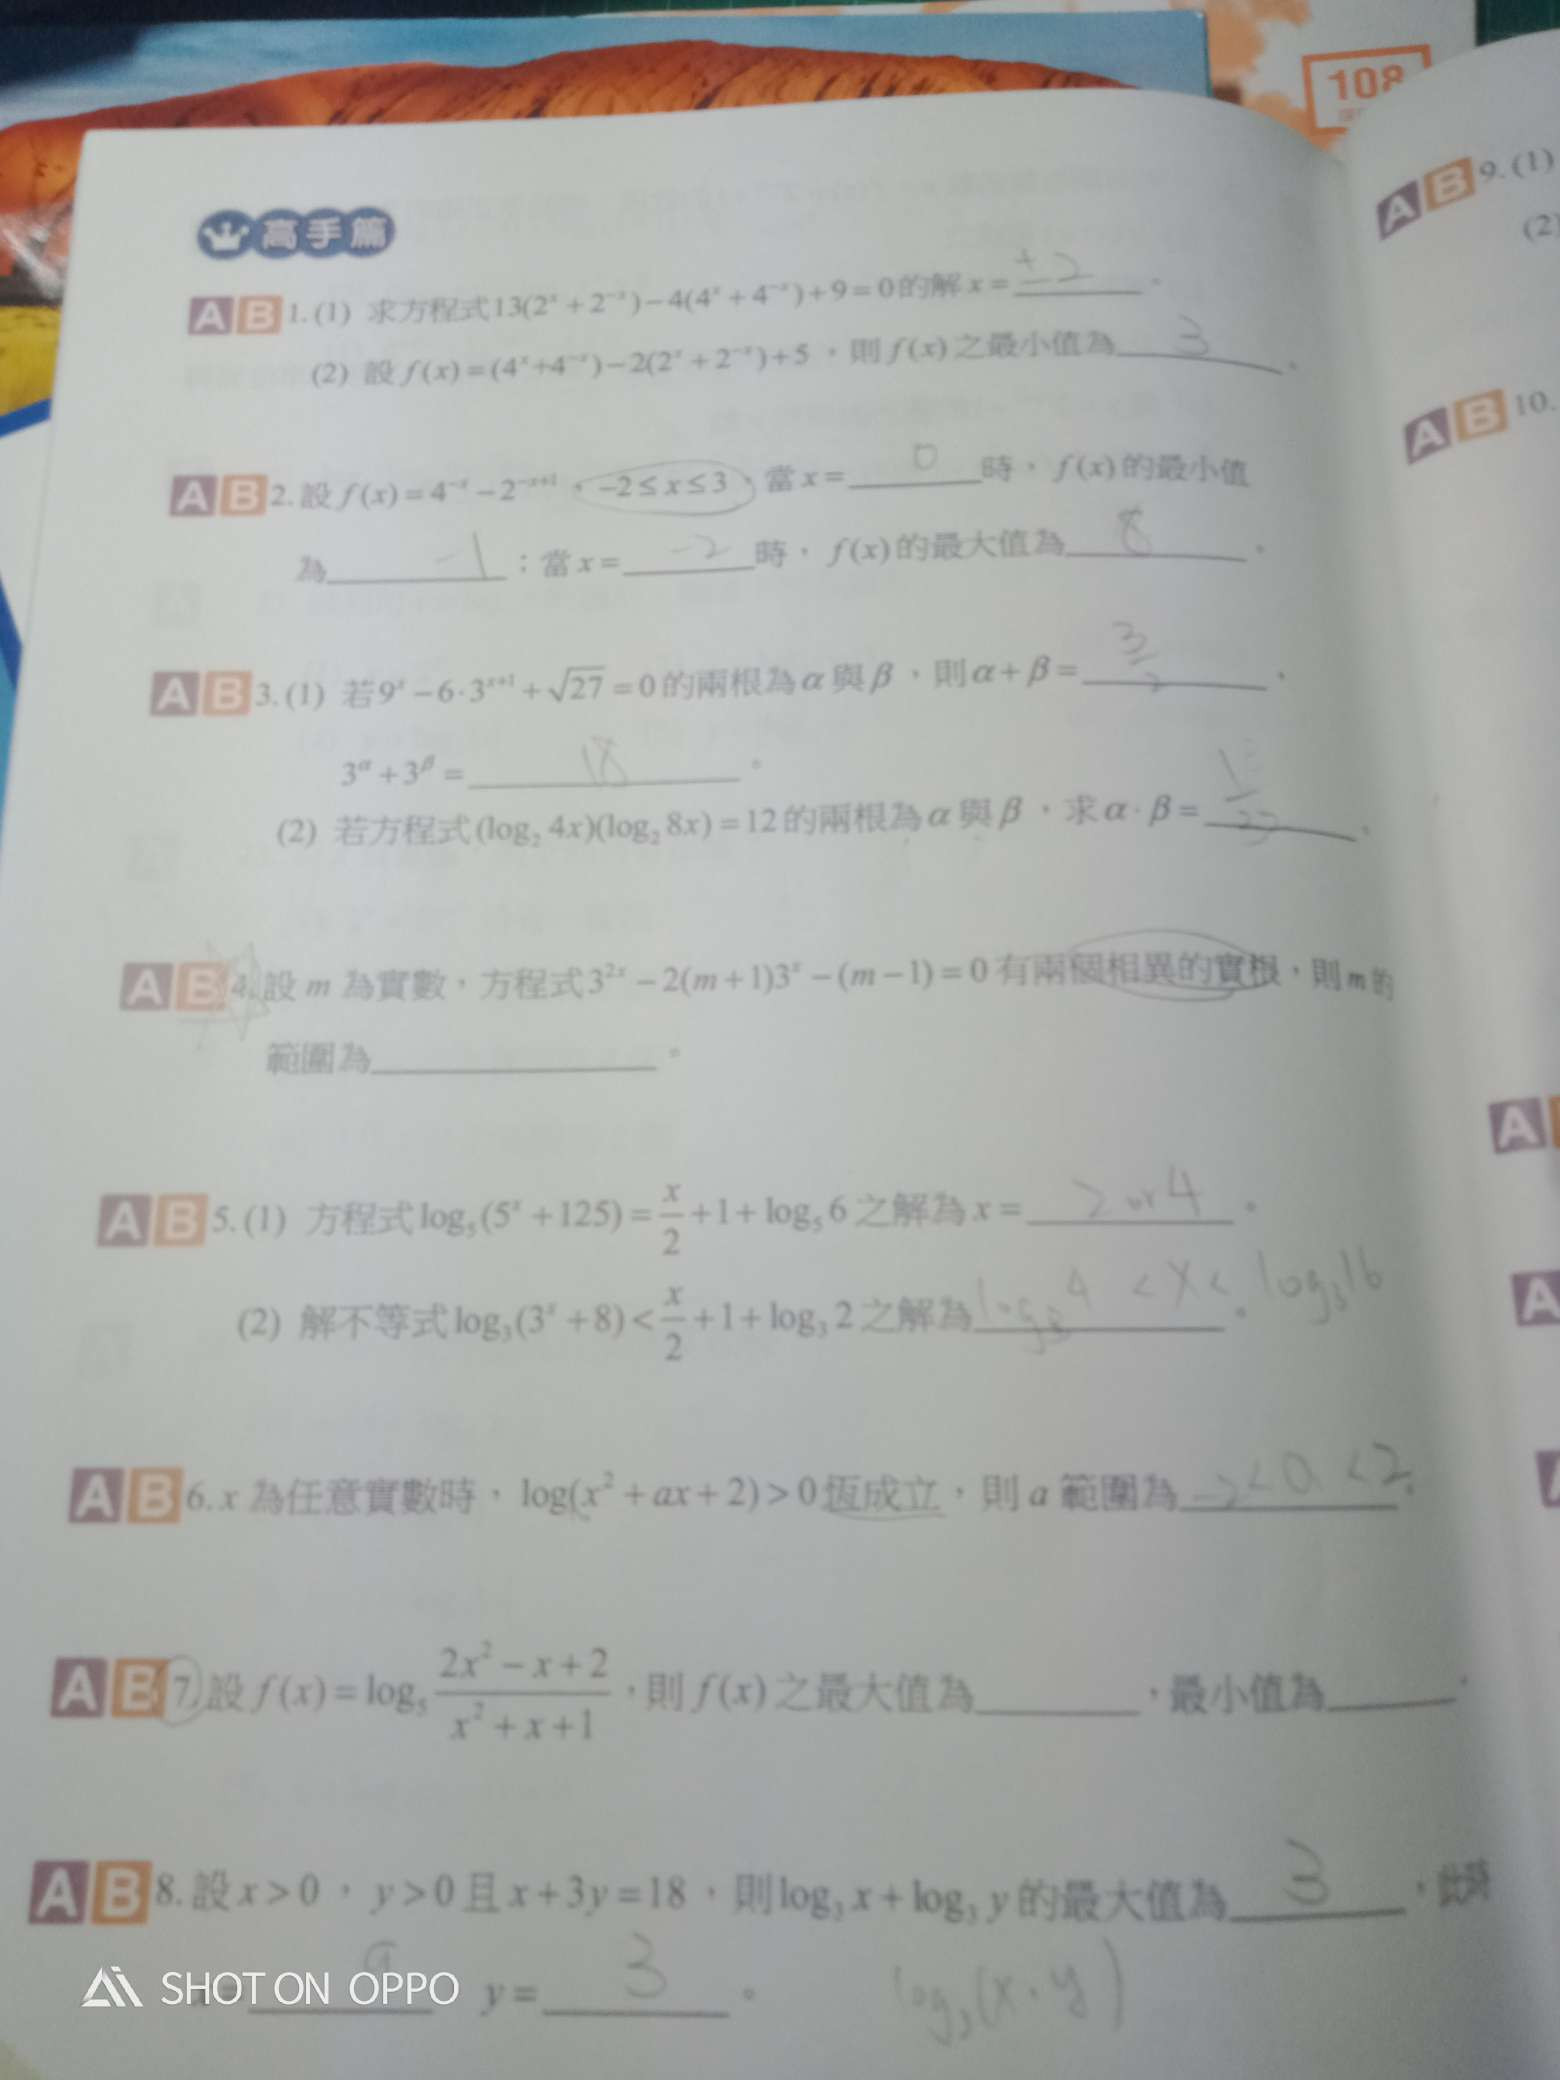 108
高手篇
A B 1. (1) 求方程式13(2ˣ + 2⁻ˣ) − 4(4ˣ + 4⁻ˣ) + 9 = 0的解 x = ±2 。
(2) 設 f(x) = (4ˣ+4⁻ˣ) − 2(2ˣ + 2⁻ˣ) + 5,則 f(x) 之最小值為 3 。
A B 2. 設 f(x) = 4⁻ˣ − 2⁻ˣ⁺¹,−2 ≤ x ≤ 3,當 x = 0 時,f(x) 的最小值
為 −1 ;當 x = −2 時,f(x) 的最大值為 8 。
A B 3. (1) 若 9ˣ − 6·3ˣ⁺¹ + √27 = 0 的兩根為 α 與 β,則 α + β = 3/2 ,
3^α + 3^β = 18 。
(2) 若方程式 (log₂ 4x)(log₂ 8x) = 12 的兩根為 α 與 β,求 α · β =
A B 4. 設 m 為實數,方程式 3²ˣ − 2(m + 1)3ˣ − (m − 1) = 0 有兩個相異的實根,則 m 的
範圍為 。
A B 5. (1) 方程式 log₅(5ˣ + 125) = x/2 + 1 + log₅ 6 之解為 x = 2 or 4 。
(2) 解不等式 log₃(3ˣ + 8) < x/2 + 1 + log₃ 2 之解為 log₃4 < x < log₃16 。
A B 6. x 為任意實數時,log(x² + ax + 2) > 0 恆成立,則 a 範圍為 −2 < a < 2 .
A B 7. 設 f(x) = log₅ (2x² − x + 2)/(x² + x + 1),則 f(x) 之最大值為 ,最小值為 .
A B 8. 設 x > 0,y > 0 且 x + 3y = 18,則 log₃ x + log₃ y 的最大值為 3 ,此時
x = 9 y = 3 。
log₃(x·y)
SHOT ON OPPO
A B 9. (1)
(2)
A B 10.
A
A